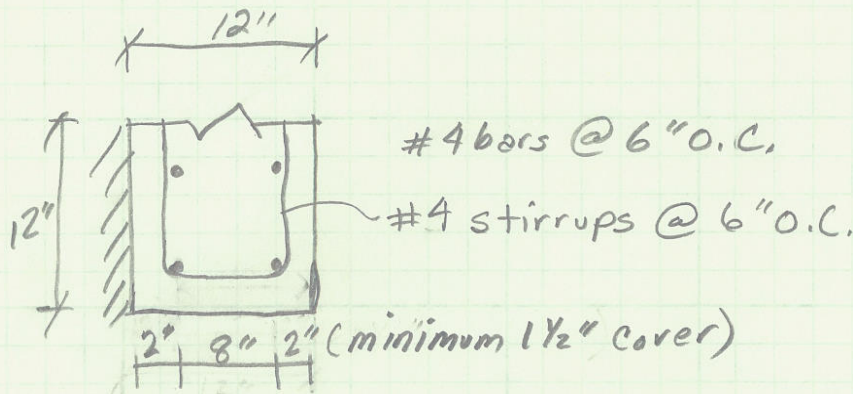 12"
#4 bars @ 6" O.C.
12"
#4 stirrups @ 6" O.C.
2" 8" 2" (minimum 1½" cover)